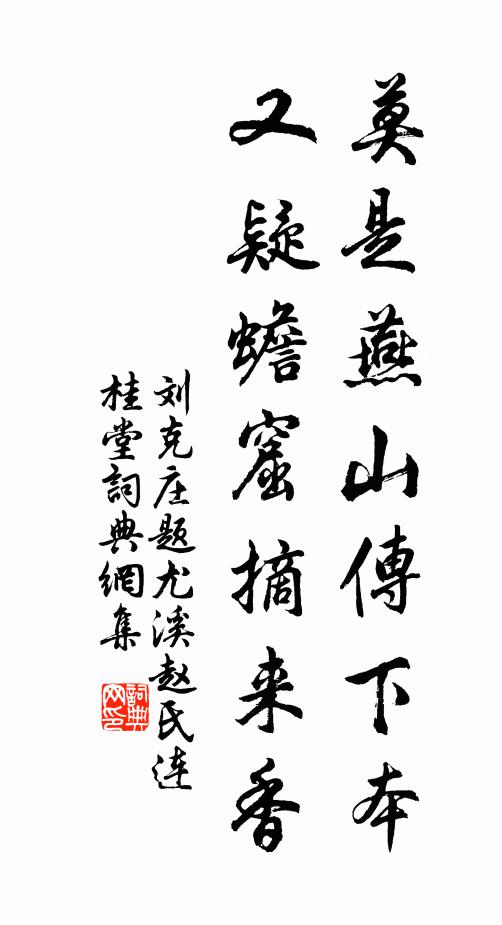 莫是燕山傳下本
又疑蟾窟摘来香
刘克庄题尤溪赵氏连
桂堂詞典網集
詞典
网印